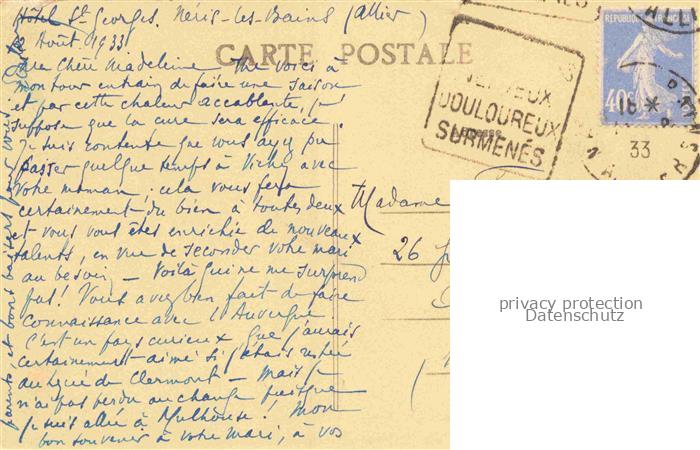 Hôtel St Georges. Néris-les-Bains (Allier)
Août 1933
Ma Chère Madeleine Me voici à
mon tour en train de faire une saison
et par cette chaleur accablante, je
suppose que la cure sera efficace.
Je suis contente que vous ayez pu
passer quelque temps à Vichy avec
votre maman, cela vous fera
certainement du bien à toutes deux
et vous vous êtes enrichie de nouveaux
talents, en vue de seconder votre mari
au besoin – Voilà qui ne me surprend
pas! Vous avez bien fait de faire
connaissance avec l'Auvergne.
C'est un pays curieux que j'aurais
certainement aimé si j'étais restée
au lycée de Clermont – Mais je
n'ai pas perdu au change puisque
je suis allée à Mulhouse! Mon
bon souvenir à votre mari, à vos
parents, et bons baisers pour vous.
CARTE POSTALE
DOULOUREUX
SURMENÉS
REPUBLIQUE FRANÇAISE
40c
18 *
33
Madame
26
privacy protection
Datenschutz